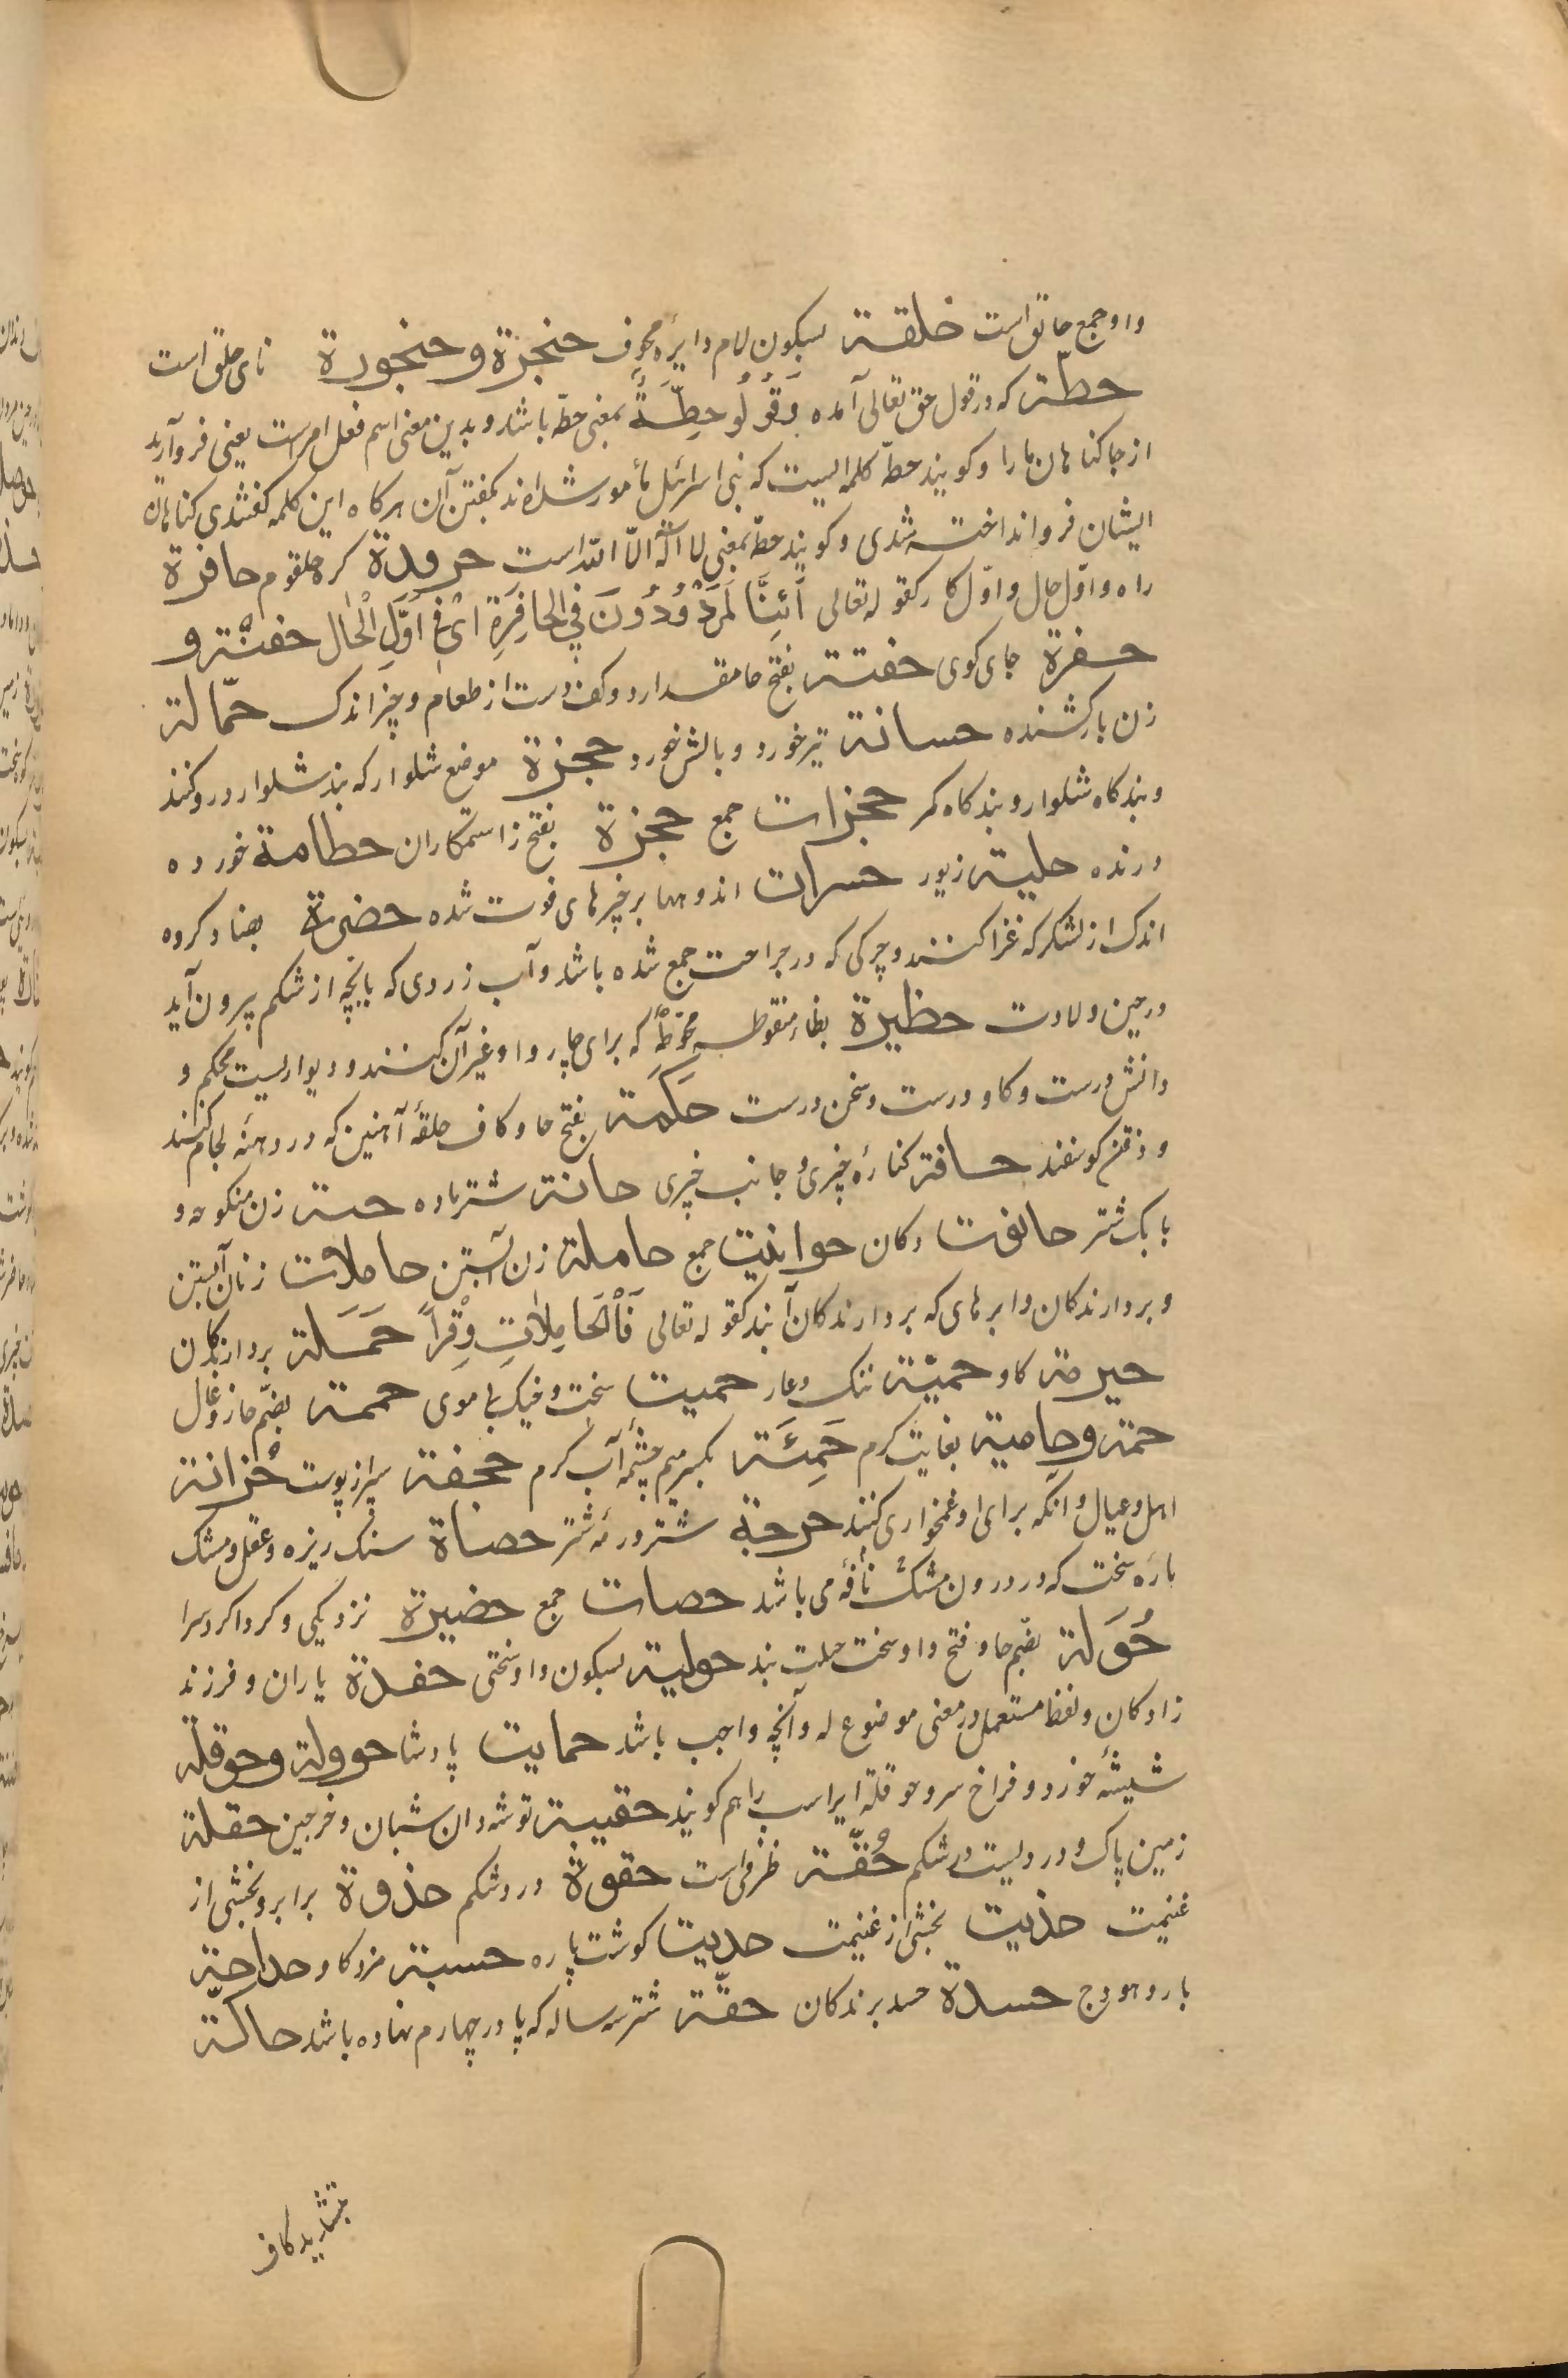 واو جمع حانق است خلقة بسکون لام دایرهٔ مجوف حنجرة و حنجورة نای حلق است
حطّة که در قول حق تعالی آمده وَقُولُوا حِطَّةٌ بمعنی حطّه باشد و بدین معنی اسم فعل امرست یعنی فرو آرید
از جا کناهان ما را و کویند حطّه کلمه ایست که بنی اسرائیل مأمور شده اند بکفتن آن هرکاه این کلمه کفتندی کناهان
ایشان فرو انداخته شدی و کویند حطّه بمعنی لا اله الّا الله است حرودة کره حلقوم حافرة
راه و اوّل حال و اوّل کار کقوله تعالی أَئِنَّا لَمَرْدُودُونَ فِي الْحَافِرَةِ ای فی اَوَّلِ الْحَال حفنة و
حفرة جای کوی حفتة بفتح حا مقدار دو کف دست از طعام و چیز اندک حمّالة
زن بارکشنده حسانة تیر خورد و بالش خورد حجزة موضع شلوار که بند شلوار درو کنند
و بندکاه شلوار و بندکاه کمر حجزات جمع حجزة بفتح زا ستمکاران حطامة خورده
درنده حلیة زیور حسرات اندوهها بر چیزهای فوت شده حضیرة بهنا و کروه
اندک از لشکر که غزا کنند و چرکی که در جراحت جمع شده باشد و آب زردی که با بچه از شکم بیرون آید
در حین ولادت حظیرة بظاء منقوطه محوّطه که برای چاروا و غیر آن کنند و دیواریست محکم و
دانش درست و کار درست و سخن درست حَکَمة بفتح حا و کاف حلقهٔ آهنین که در دهنه لجام کنند
و ذقن کوسفند حافة کنارهٔ چیزی و جانب چیزی حانة شتر ماده حنة زن منکوحه و
بانک شتر حانوت دکان حوانیت جمع حاملة زن آبستن حاملات زنان آبستن
و بردارندکان و ابرهای که بردارندکان آبند کقوله تعالی فَالْحَامِلَاتِ وِقْراً حَمَلة بردارندکان
حیرمة کاو حمیّة ننک و عار حمیت سخت و خیک بی موی حممة بضم حا زوغال
حمة و حامیة بغایت کرم حَمِئَة بکسر میم چشمهٔ آب کرم حجفة سپر از پوست حُزانة
اهل و عیال و آنکه برای او غمخواری کنند حرجة شتر و رمهٔ شتر حصاة سنک ریزه و عقل و مشک
پارهٔ سخت که در درون مشک نافه می باشد حصات جمع حضیرة نزدیکی و کرداکرد سرا
حُوَلة بضم حا و فتح واو سخت حیلت بند حولیة بسکون واو سختی حفدة یاران و فرزند
زادکان و لفظ مستعمل در معنی موضوع له و آنچه واجب باشد حمایت پادشا حوولة و حوقلة
شیشهٔ خورد و فراخ سر و حوقلة ایر اسب را هم کویند حقیبة توشه دان شبان و خرجین حقلة
زمین پاک و دردیست در شکم حُقّة ظرفی است حقوة درد شکم حذوة برابر و بخشی از
غنیمت حذیت بخشی از غنیمت حدیت کوشت پاره حسبة مزد کار حداجة
بار و هودج حسدة حسد برندکان حقّة شتر سه ساله که پا در چهارم نهاده باشد حاکّة
بتشدید کاف